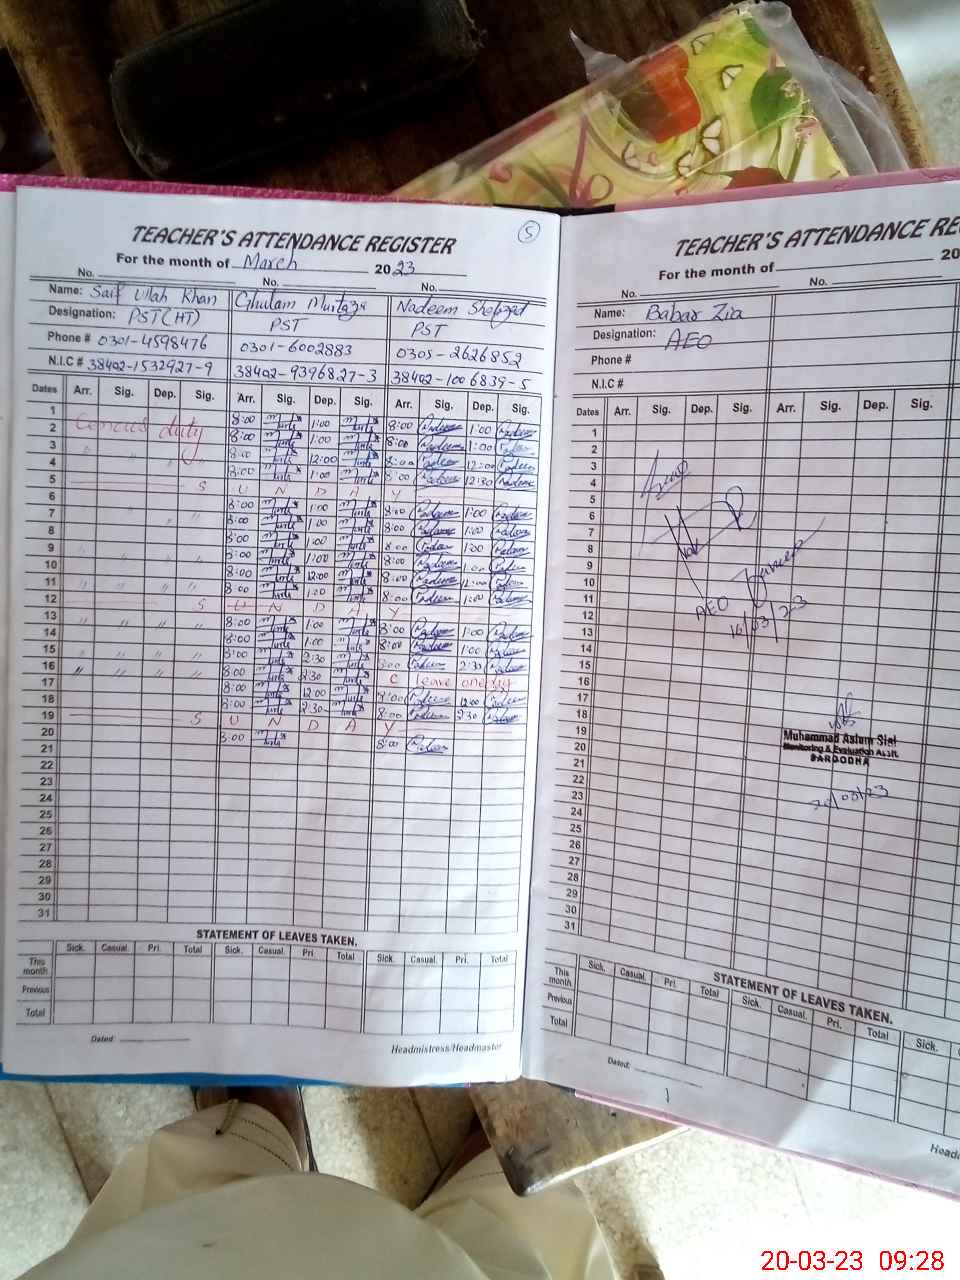 5
TEACHER'S ATTENDANCE REGISTER
For the month of March 2023
No. No. No.
Name: Saif Ullah Khan Ghulam Murtaza Nadeem Shehzad
Designation: PST (HT) PST PST
Phone # 0301-4598476 0301-6002883 0305-2626852
N.I.C # 38402-1532927-9 38402-9396827-3 38402-1006839-5
Dates Arr. Sig. Dep. Sig. Arr. Sig. Dep. Sig. Arr. Sig. Dep. Sig.
1 8:00 1:00 8:00 Nadeem 1:00 Nadeem
2 Cencus duty 8:00 1:00 8:00 Nadeem 1:00 Nadeem
3 " " " 8:00 12:00 8:00 Nadeem 12:00 Nadeem
4 8:00 1:00 8:00 Nadeem 12:30 Nadeem
5 S U N D A Y
6 8:00 1:00 8:00 Nadeem 1:00 Nadeem
7 8:00 1:00 8:00 Nadeem 1:00 Nadeem
8 8:00 1:00 8:00 Nadeem 1:00 Nadeem
9 8:00 1:00 8:00 Nadeem 1:00 Nadeem
10 8:00 12:00 8:00 Nadeem 12:00 Nadeem
11 " " " " 8:00 1:00 8:00 Nadeem 1:00 Nadeem
12 S U N D A Y
13 " " " " 8:00 1:00 8:00 Nadeem 1:00 Nadeem
14 8:00 1:00 8:00 Nadeem 1:00 Nadeem
15 " " " " 8:00 2:30 8:00 Nadeem 2:30 Nadeem
16 " " " " 8:00 2:30 C leave one day
17 8:00 12:00 8:00 Nadeem 12:00 Nadeem
18 8:00 2:30 8:00 Nadeem 2:30 Nadeem
19 S U N D A Y
20 8:00 8:00 Nadeem
21
22
23
24
25
26
27
28
29
30
31
STATEMENT OF LEAVES TAKEN.
Sick. Casual. Pri. Total Sick. Casual. Pri. Total Sick. Casual. Pri. Total
This month
Previous
Total
Dated:
Headmistress/Headmaster
TEACHER'S ATTENDANCE RE
For the month of 20
No. No.
Name: Babar Zia
Designation: AEO
Phone #
N.I.C #
Dates Arr. Sig. Dep. Sig. Arr. Sig. Dep. Sig.
1
2
3
4
5
6
7
8
9
10
11
12
13
14
15
16
17
18
19
20
21
22
23
24
25
26
27
28
29
30
31
AEO
16/03/23
Muhammad Aslam Sial
Monitoring & Evaluation Asstt.
SARGODHA
20/03/23
STATEMENT OF LEAVES TAKEN.
Sick. Casual. Pri. Total Sick. Casual. Pri. Total Sick.
This month
Previous
Total
Dated:
Head
20-03-23 09:28